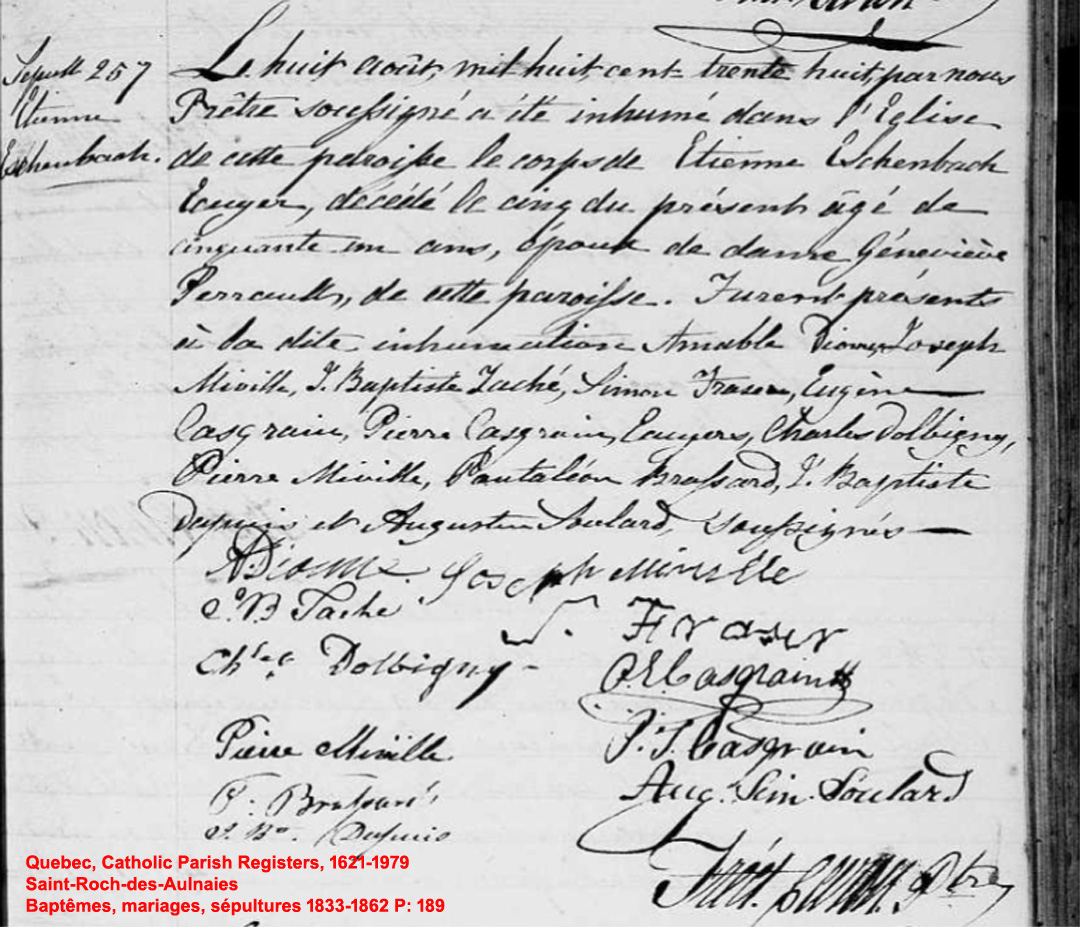 Sépult 257
Etienne
Eschenbach.
Le huit août, mil huit cent trente huit, par nous
Prêtre soussigné a été inhumé dans l'Eglise
de cette paroisse le corps de Etienne Eschenbach
Ecuyer, décédé le cinq du présent âgé de
cinquante un ans, époux de dame Géneviève
Perrault, de cette paroisse. Furent présents
à la dite inhumation Amable Dionne, Joseph
Miville, J. Baptiste Taché, Simon Fraser, Eugène
Casgrain, Pierre Casgrain, Ecuyers, Charles Dolbigny,
Pierre Miville, Pantaléon Brassard, J. Baptiste
Dupuis et Augustin Soulard, soussignés
ADionne Joseph Miville
J. B Taché S. Fraser
Chs Dolbigny O.E. Casgrain
Pierre Miville P. T. Casgrain
P. Brassard Augustin Soulard
J. Bte Dupuis
Ptre
Quebec, Catholic Parish Registers, 1621-1979
Saint-Roch-des-Aulnaies
Baptêmes, mariages, sépultures 1833-1862 P: 189